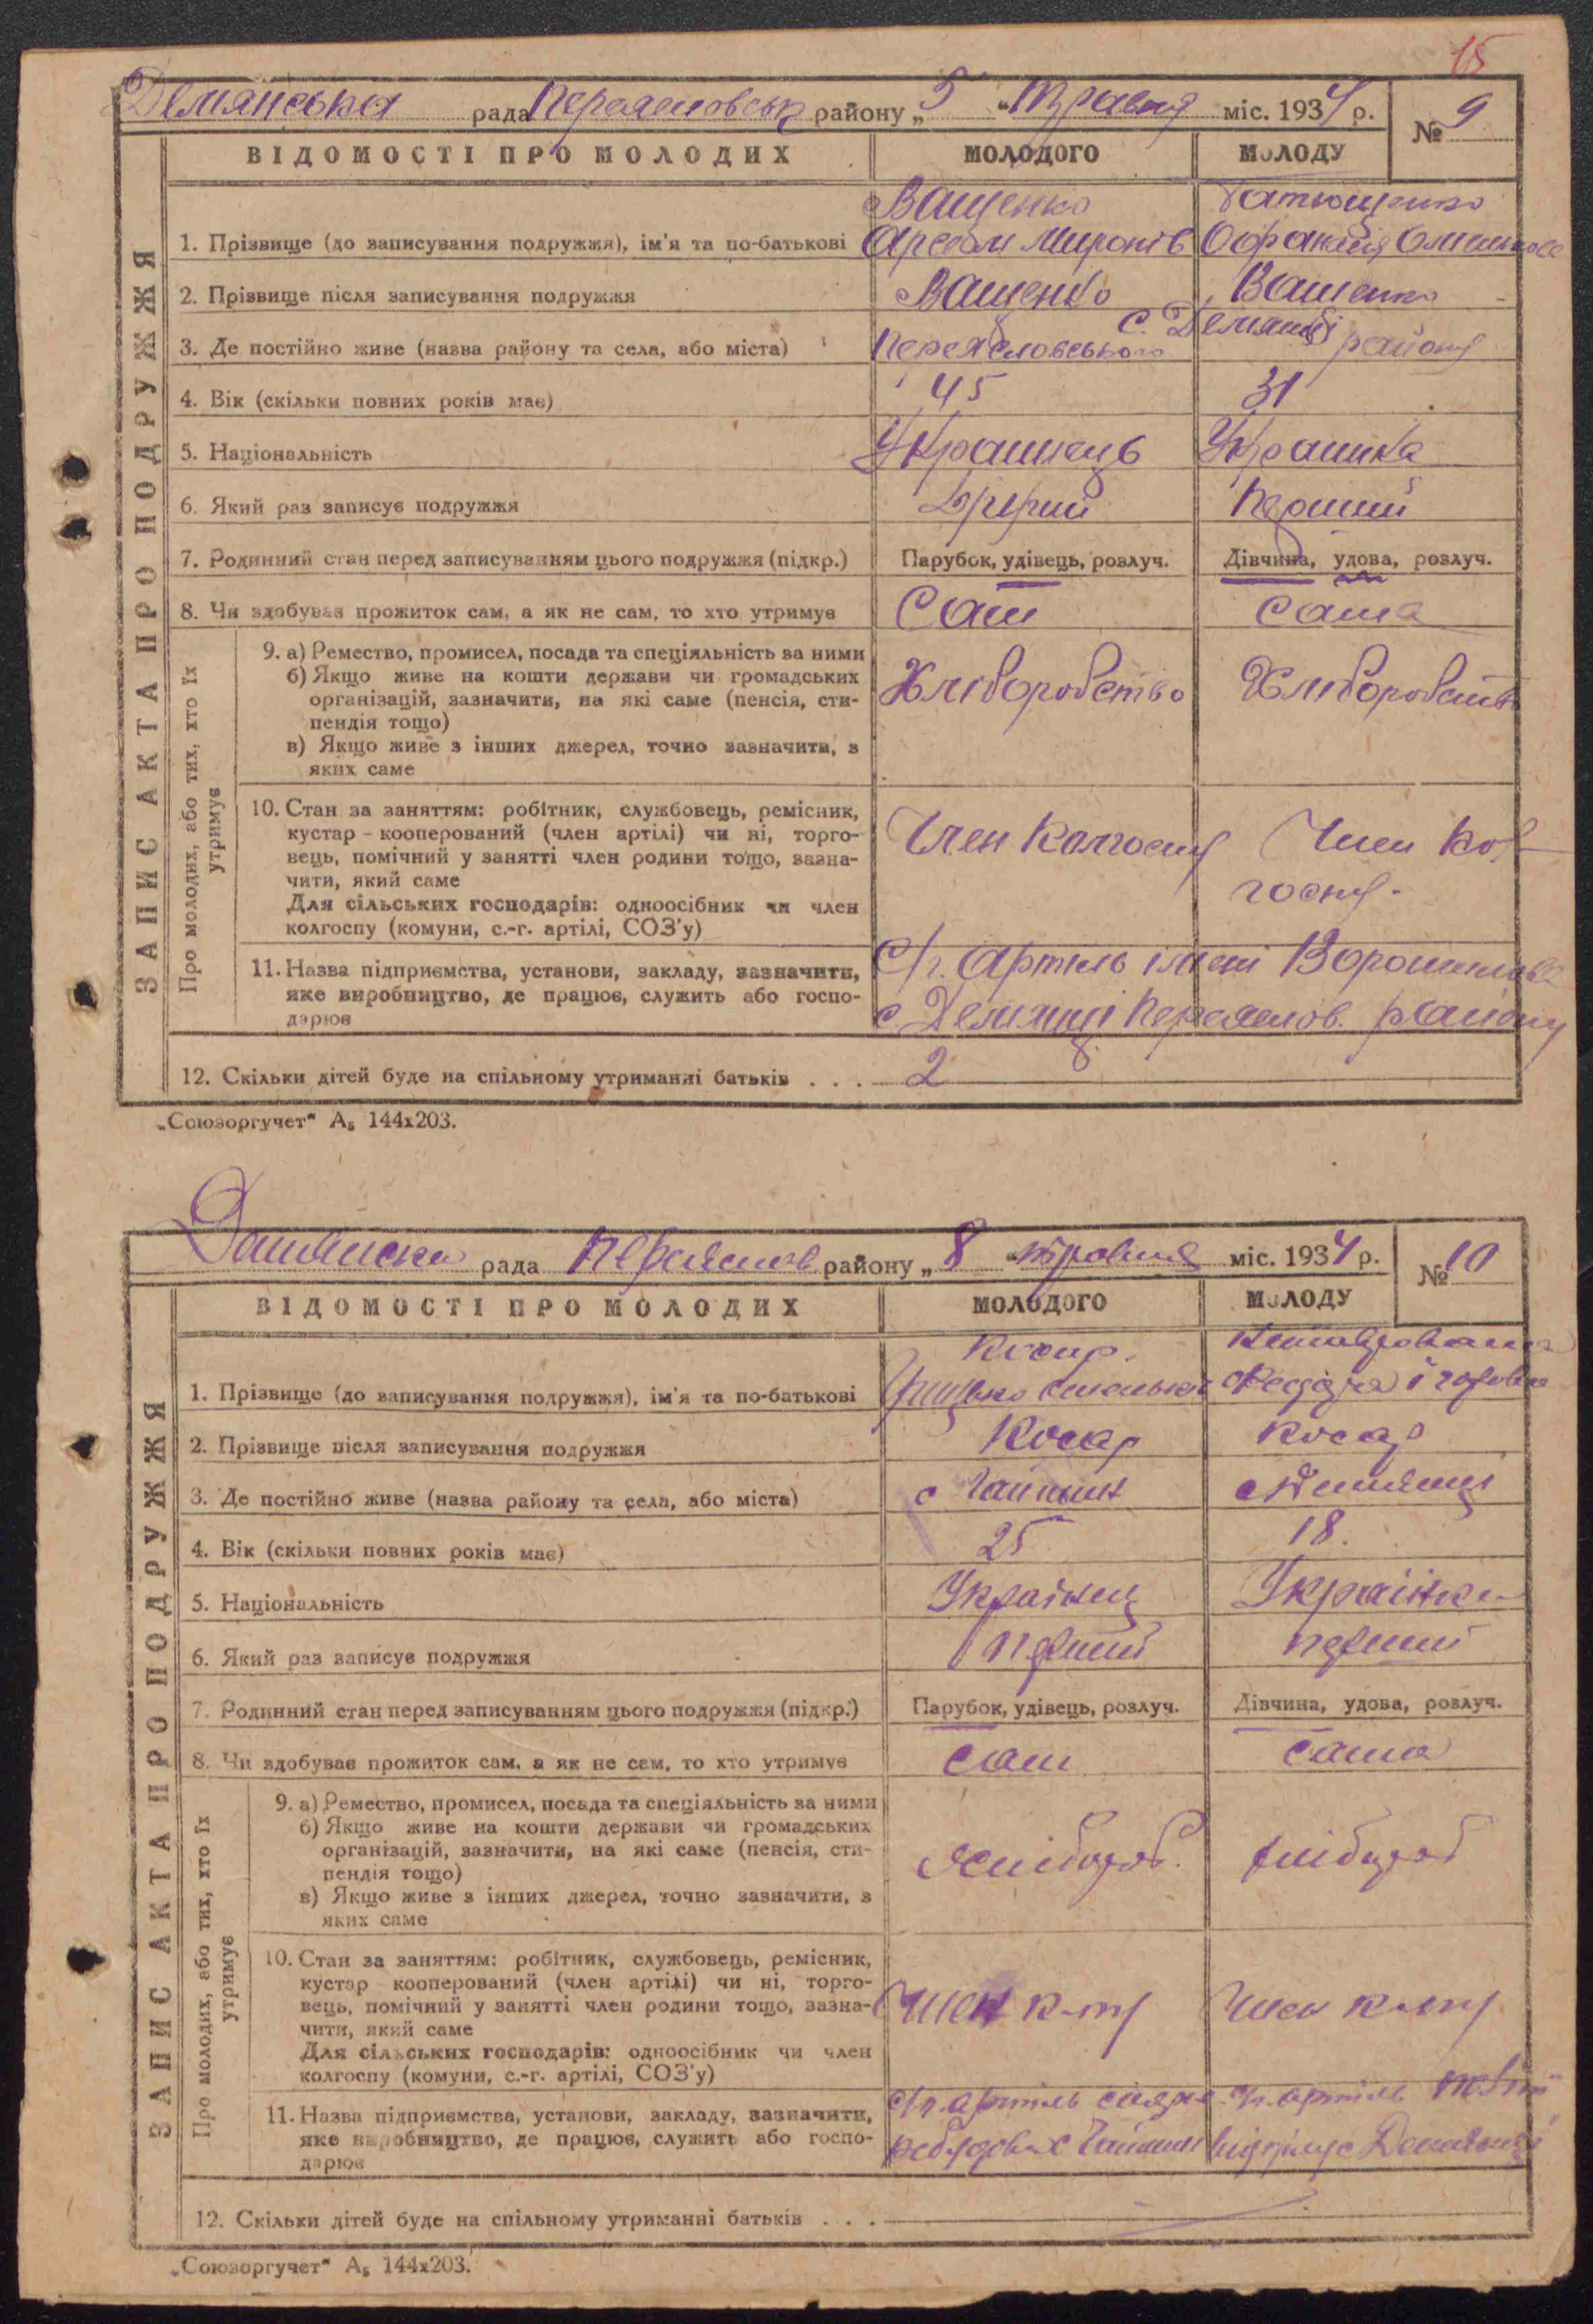 15
Демянська рада Переясловськ району „5“ Травня міс. 1934 р. № 9
ВІДОМОСТІ ПРО МОЛОДИХ МОЛОДОГО МОЛОДУ
ЗАПИС АКТА ПРО ПОДРУЖЖЯ
Ващенко
1. Прізвище (до записування подружжя), ім'я та по-батькові Мironів
2. Прізвище після записування подружжя Ващенко Ващенко
3. Де постійно живе (назва району та села, або міста) с. Демянці
Переясловського району
4. Вік (скільки повних років має) 45 31
5. Національність Українець Українка
6. Який раз записує подружжя Другий Перший
7. Родинний стан перед записуванням цього подружжя (підкр.) Парубок, удівець, розлуч. Дівчина, удова, розлуч.
8. Чи здобував прожиток сам, а як не сам, то хто утримує Сам Сама
Про молодих, або тих, хто їх утримує
9. а) Ремество, промисел, посада та спеціяльність за ними
б) Якщо живе на кошти держави чи громадських
організацій, зазначити, на які саме (пенсія, сти-
пендія тощо)
в) Якщо живе з інших джерел, точно зазначити, з
яких саме
Хліборобство Хліборобств
10. Стан за заняттям: робітник, службовець, ремісник,
кустар - кооперований (член артілі) чи ні, торго-
вець, помічний у занятті член родини тощо, зазна-
чити, який саме
Для сільських господарів: одноосібник чи член
колгоспу (комуни, с.-г. артілі, СОЗ'у)
Член Колгоспу Член Кол-
госпу.
11. Назва підприємства, установи, закладу, зазначити,
яке виробництво, де працює, служить або госпо-
дарює
С/г. Артиль імені Ворошилова
с Демянці Переяслов. району
12. Скільки дітей буде на спільному утриманні батьків . . . 2
„Союзоргучет“ А₅ 144х203.
рада Переяслов району „8“ травня міс. 1934 р. № 10
ВІДОМОСТІ ПРО МОЛОДИХ МОЛОДОГО МОЛОДУ
ЗАПИС АКТА ПРО ПОДРУЖЖЯ
Косар.
1. Прізвище (до записування подружжя), ім'я та по-батькові
2. Прізвище після записування подружжя Косар Косар
3. Де постійно живе (назва району та села, або міста) с Гайшин с Демянці
4. Вік (скільки повних років має) 25 18.
5. Національність Українец Українка
6. Який раз записує подружжя перший перший
7. Родинний стан перед записуванням цього подружжя (підкр.) Парубок, удівець, розлуч. Дівчина, удова, розлуч.
8. Чи здобуває прожиток сам, а як не сам, то хто утримує сам сама
Про молодих, або тих, хто їх утримує
9. а) Ремество, промисел, посада та спеціяльність за ними
б) Якщо живе на кошти держави чи громадських
організацій, зазначити, на які саме (пенсія, сти-
пендія тощо)
в) Якщо живе з інших джерел, точно зазначити, з
яких саме
хлібороб. хлібороб
10. Стан за заняттям: робітник, службовець, ремісник,
кустар - кооперований (член артілі) чи ні, торго-
вець, помічний у занятті член родини тощо, зазна-
чити, який саме
Для сільських господарів: одноосібник чи член
колгоспу (комуни, с.-г. артілі, СОЗ'у)
член член
11. Назва підприємства, установи, закладу, зазначити,
яке виробництво, де працює, служить або госпо-
дарює
с/г артіль с/г. артіль
12. Скільки дітей буде на спільному утриманні батьків . . .
„Союзоргучет“ А₅ 144х203.